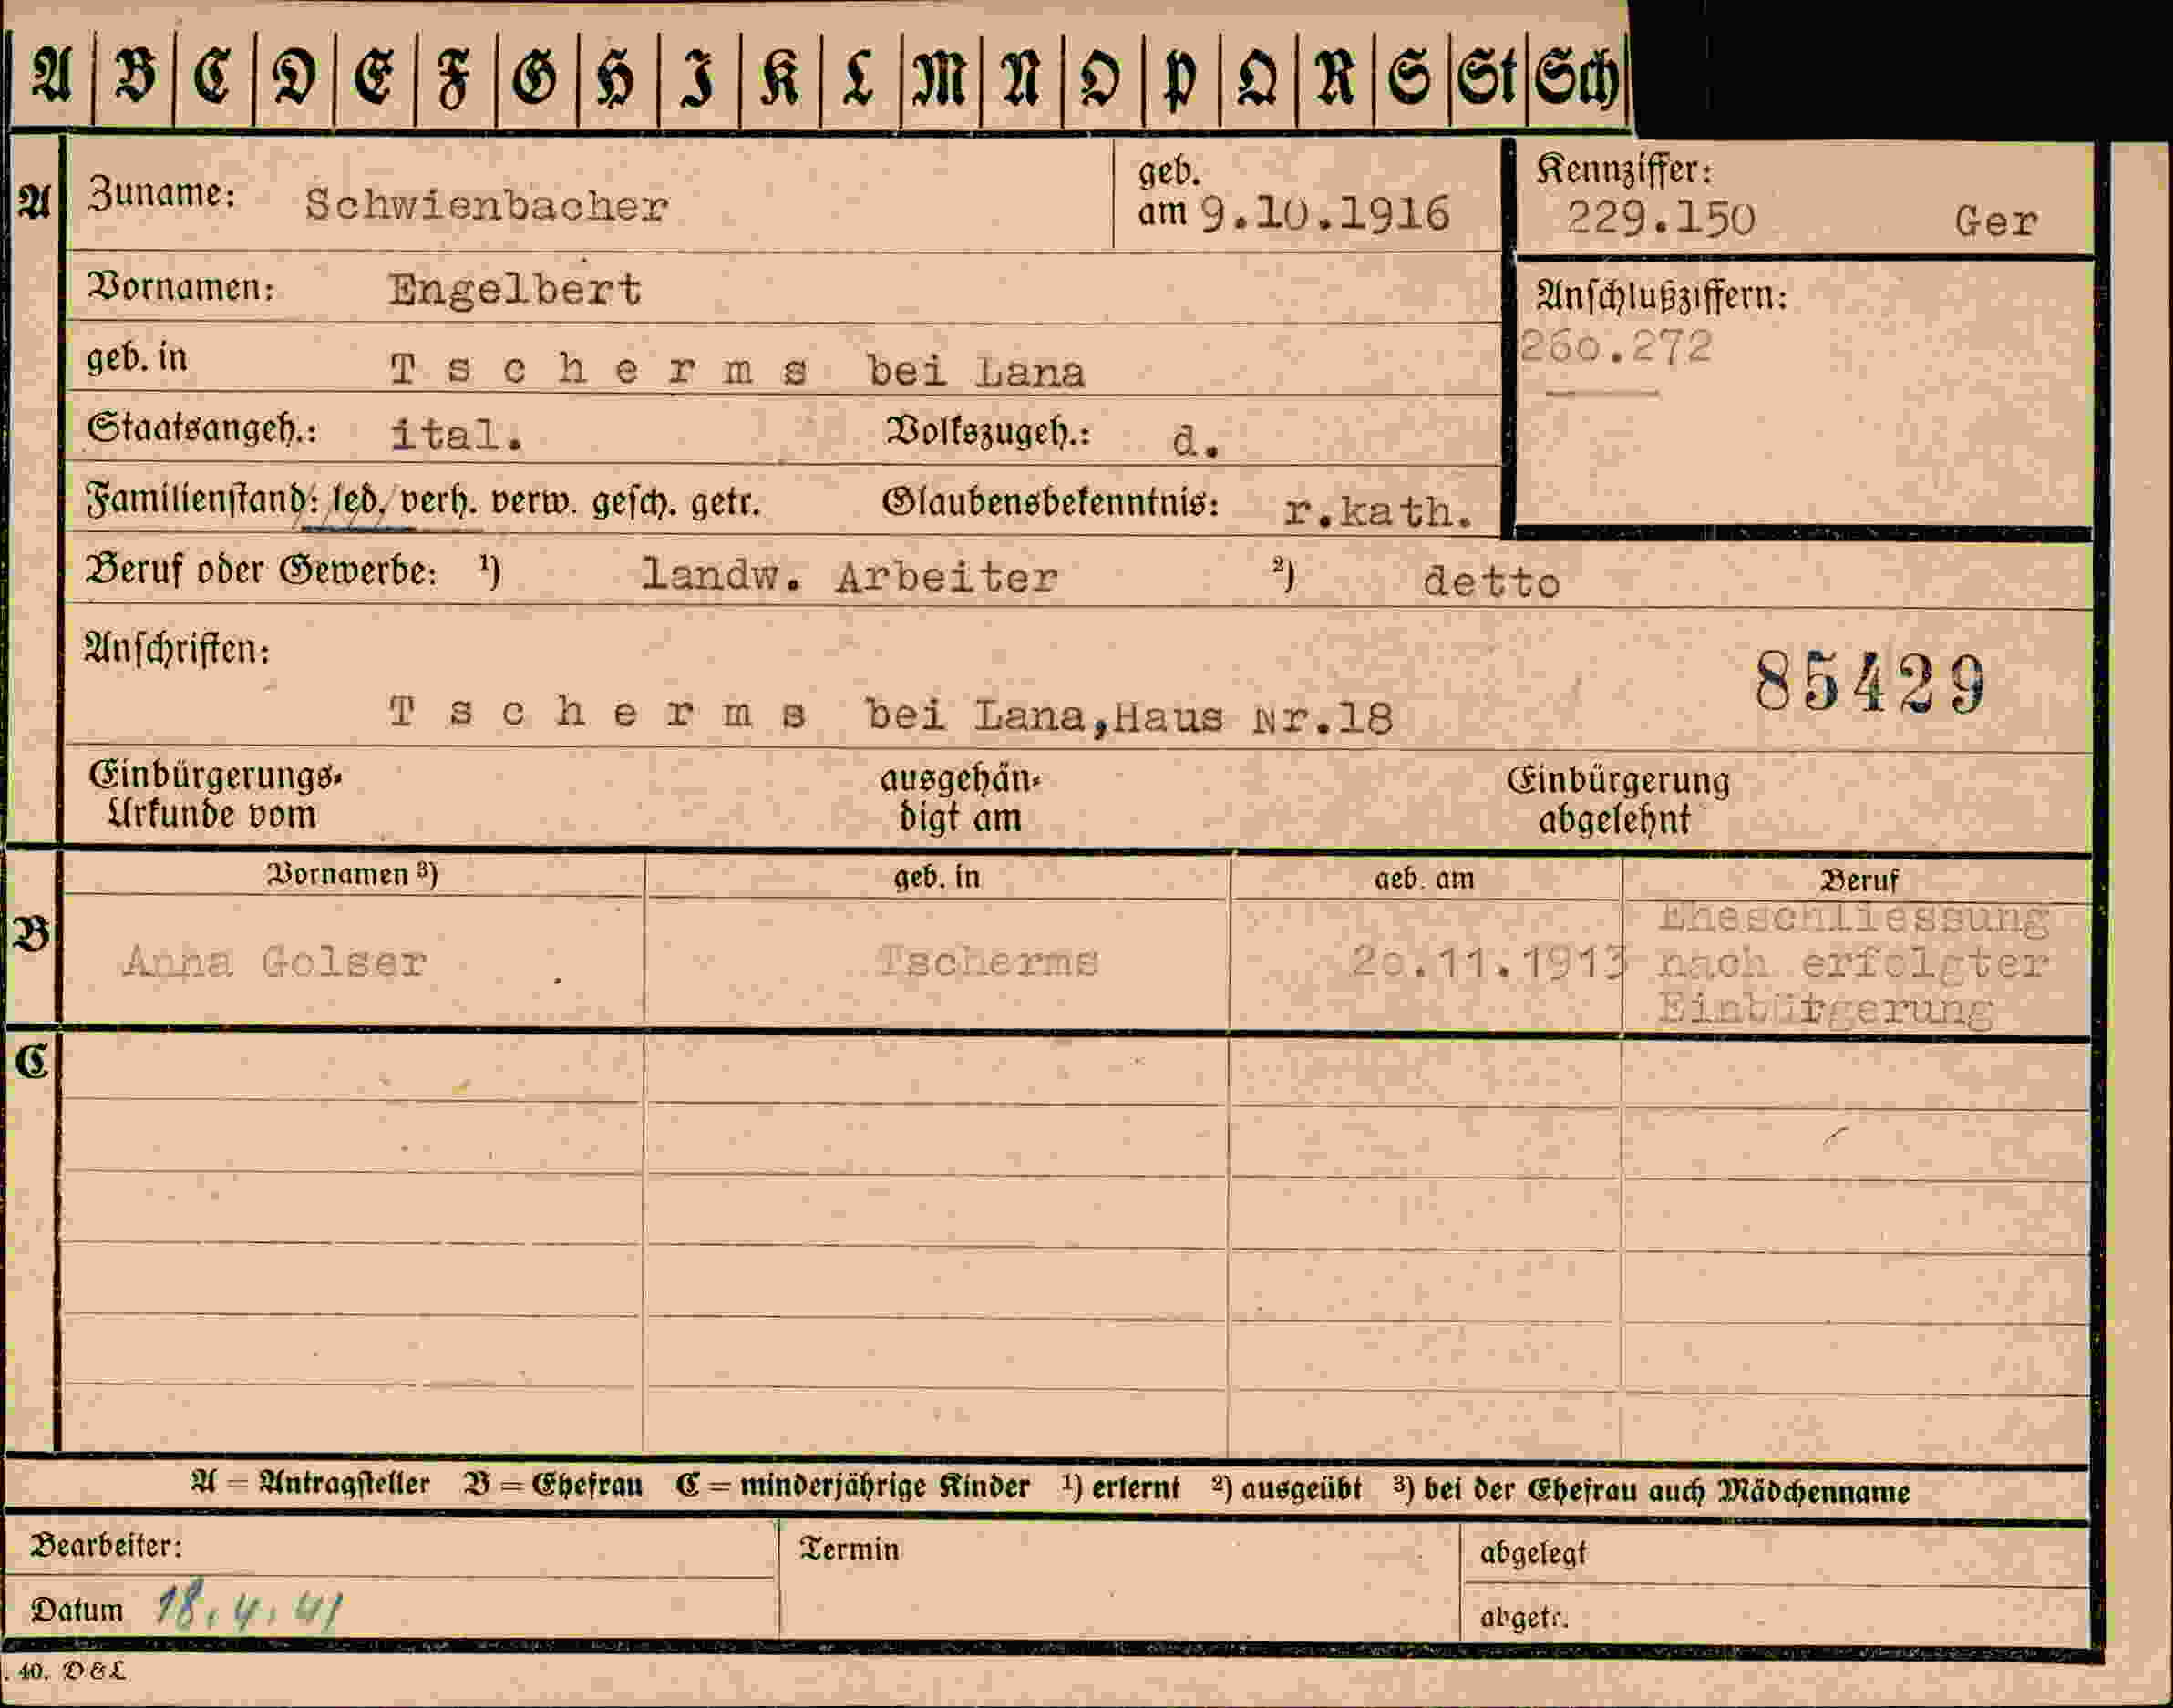 A B C D E F G H I K L M N O P Q R S St Sch
A Zuname: Schwienbacher geb. am 9.10.1916 Kennziffer: 229.150 Ger
Vornamen: Engelbert Anschlußziffern:
geb. in Tscherms bei Lana 260.272
Staatsangeh.: ital. Volkszugeh.: d.
Familienstand: led. verh. verw. gesch. getr. Glaubensbekenntnis: r.kath.
Beruf oder Gewerbe: ¹) landw. Arbeiter ²) detto
Anschriften: 85429
Tscherms bei Lana,Haus Nr.18
Einbürgerungs- ausgehän- Einbürgerung
Urkunde vom digt am abgelehnt
Vornamen ³) geb. in geb. am Beruf
B Anna Golser Tscherms 20.11.1913 Eheschliessung
nach erfolgter
Einbürgerung
C
A = Antragsteller B = Ehefrau C = minderjährige Kinder ¹) erlernt ²) ausgeübt ³) bei der Ehefrau auch Mädchenname
Bearbeiter: Termin abgelegt
Datum 18.4.41 abgetr.
. 40. D & L